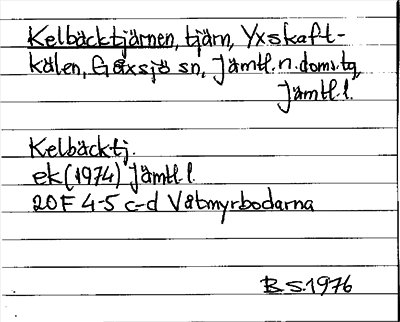 Kelbäcktjärnen, tjärn, Yxskaft-
kälen, Gåxsjö sn, Jämtl. n. doms. tg,
Jämtl. l.
Kelbäcktj.
ek (1974) Jämtl. l.
20F 4-5 c-d Våtmyrbodarna
B S. 1976